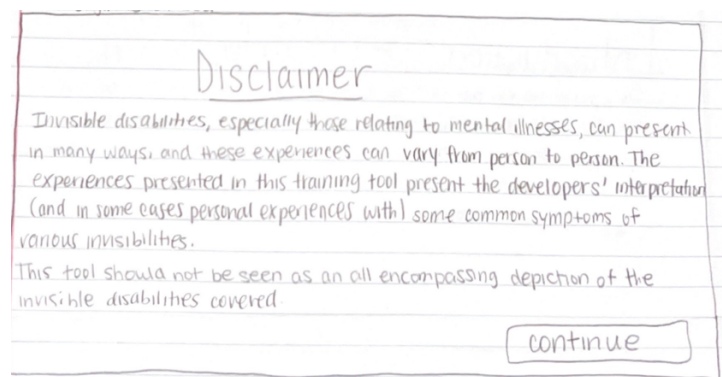 Disclaimer
Invisible disabilities, especially those relating to mental illnesses, can present
in many ways, and these experiences can vary from person to person. The
experiences presented in this training tool present the developers' interpretation
(and in some cases personal experiences with) some common symptoms of
various invisibilities.
This tool should not be seen as an all encompassing depiction of the
invisible disabilities covered.
continue